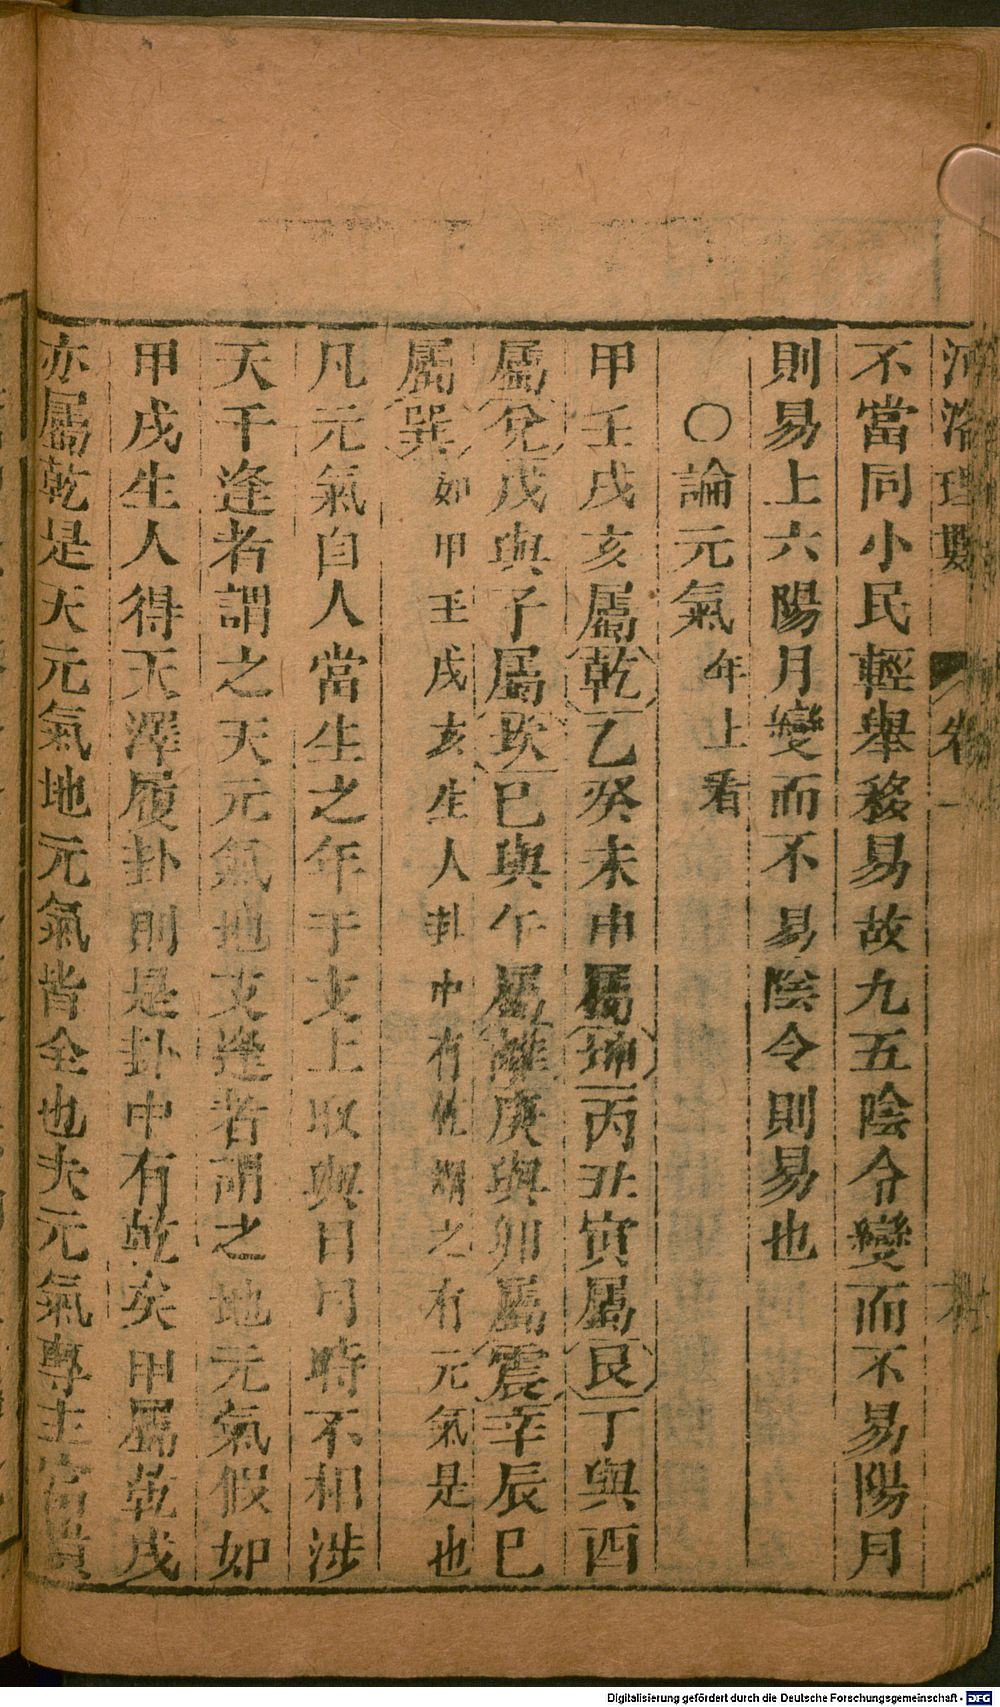 河洛理數 卷一
不當同小民輕舉移易故九五陰令變而不易陽月
則易上六陽月變而不易陰令則易也
○論元氣 年上看
甲壬戌亥屬乾乙癸未申屬坤丙丑寅屬艮丁與酉
屬兌戊與子屬坎巳與午屬離庚與卯屬震辛辰巳
屬巽如甲壬戌亥生人卦中有乾謂之有元氣是也
凡元氣自人當生之年干支上取與日月時不相涉
天干逢者謂之天元氣地支逢者謂之地元氣假如
甲戌生人得天澤履卦則是卦中有乾矣甲屬乾戌
亦屬乾是天元氣地元氣皆全也夫元氣專主富貴
Digitalisierung gefördert durch die Deutsche Forschungsgemeinschaft - DFG